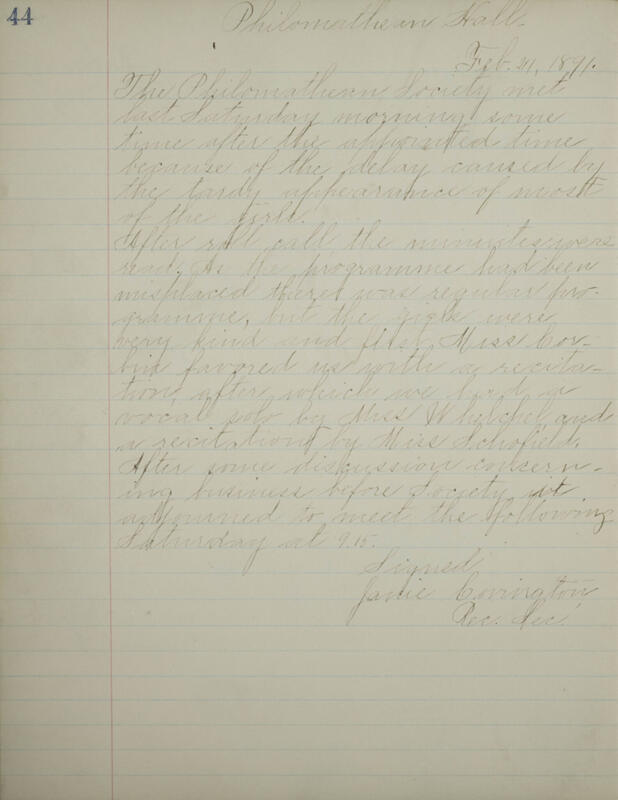 44
Philomathean Hall.
Feb. 21, 1891.
The Philomathean Society met
last Saturday morning some
time after the appointed time
because of the delay caused by
the tardy appearance of most
of the girls.
After roll call the minutes were
read. As the programme had been
misplaced there was regular pro-
gramme, but the girls were
very kind and first Miss Cor-
bin favored us with a recita-
tion, after which we had a
vocal solo by Miss Whelchel and
a recitation by Miss Schofield.
After some discussion concern-
ing business before Society it
adjourned to meet the following
Saturday at 9.15.
Signed
Janie Covington
Rec. Sec.